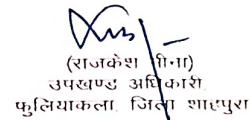 (राजकेश मीना)
उपखण्ड अधिकारी
फुलियाकला, जिला शाहपुरा